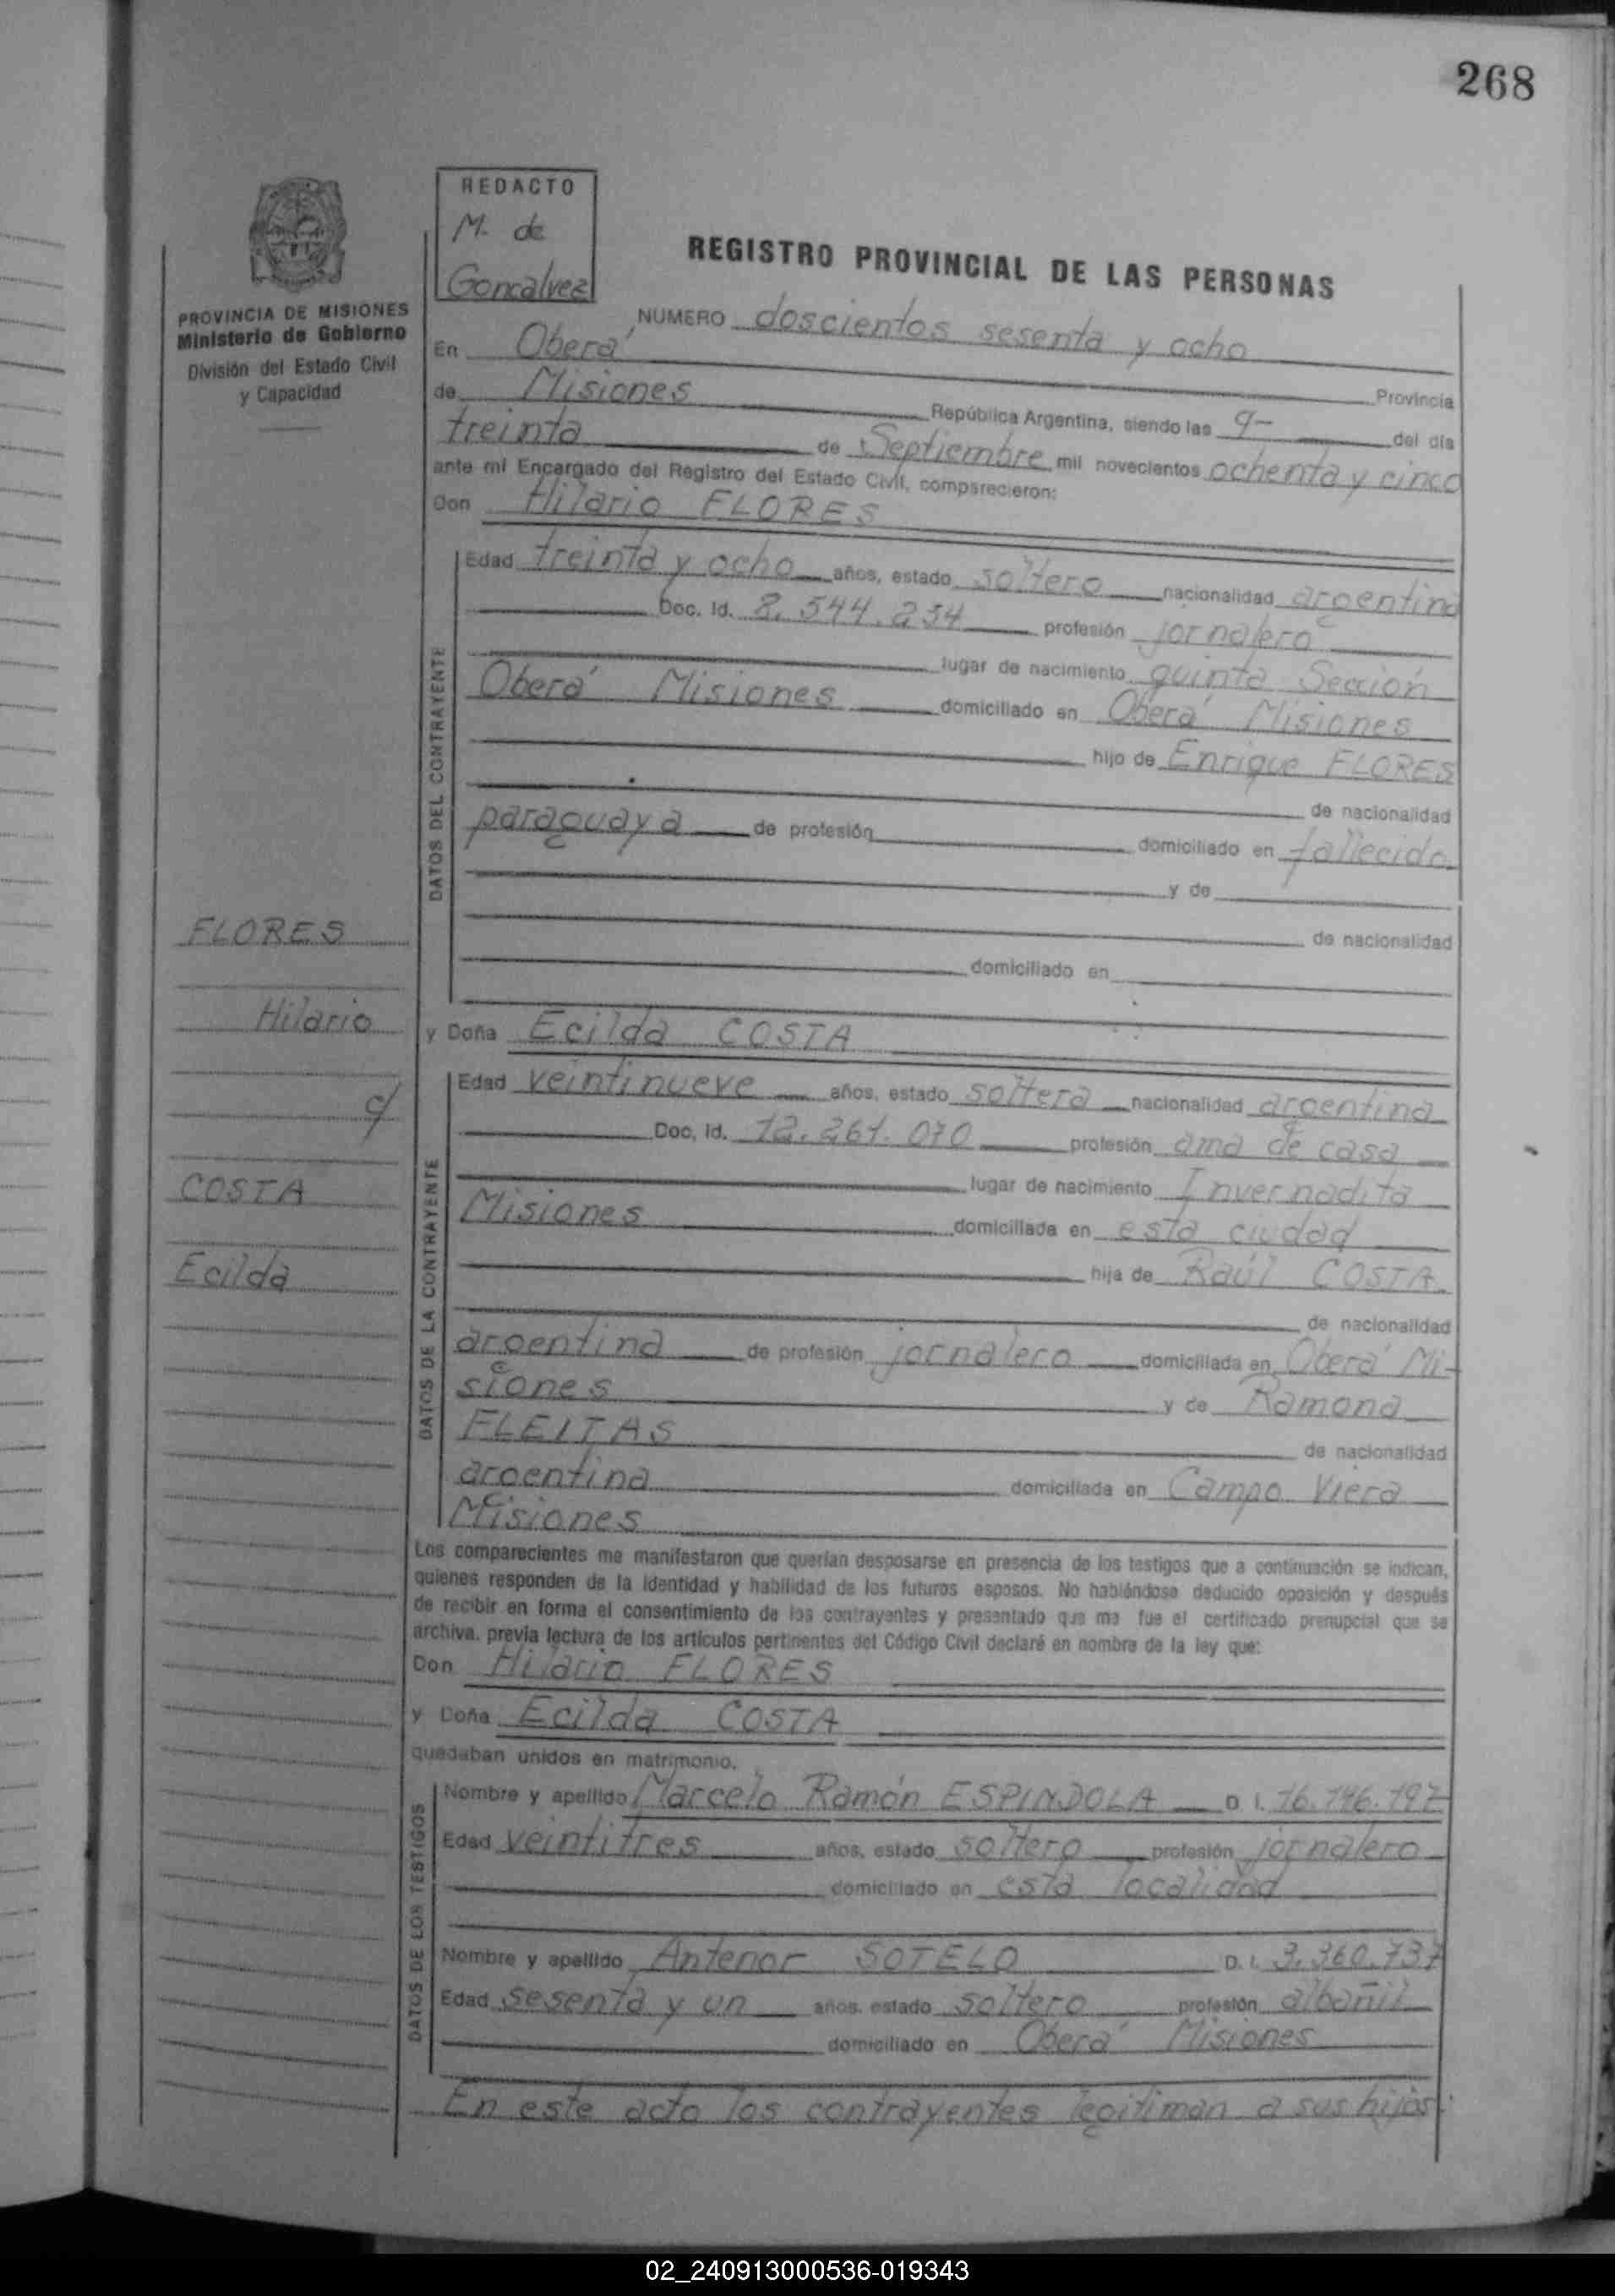 268
REDACTO
M. de
Goncalvez
PROVINCIA DE MISIONES
Ministerio de Gobierno
División del Estado Civil
y Capacidad
REGISTRO PROVINCIAL DE LAS PERSONAS
NUMERO doscientos sesenta y ocho
En Oberá Provincia
de Misiones República Argentina, siendo las 9- del día
treinta de Septiembre mil novecientos ochenta y cinco
ante mí Encargado del Registro del Estado Civil, comparecieron:
Don Hilario FLORES
DATOS DEL CONTRAYENTE
Edad treinta y ocho años, estado soltero nacionalidad argentina
Doc. Id. 8.544.234 profesión jornalero
lugar de nacimiento quinta Sección
Oberá Misiones domiciliado en Oberá Misiones
hijo de Enrique FLORES
de nacionalidad
paraguaya de profesión domiciliado en fallecido
y de
de nacionalidad
domiciliado en
FLORES
Hilario
c/
COSTA
Ecilda
y Doña Ecilda COSTA
DATOS DE LA CONTRAYENTE
Edad veintinueve años, estado soltera nacionalidad argentina
Doc, Id. 12.261.070 profesión ama de casa
lugar de nacimiento Invernadita
Misiones domiciliada en esta ciudad
hija de Raúl COSTA
de nacionalidad
argentina de profesión jornalero domiciliada en Oberá Mi-
siones y de Ramona
FLEITAS de nacionalidad
argentina domiciliada en Campo Viera
Misiones
Los comparecientes me manifestaron que querían desposarse en presencia de los testigos que a continuación se indican,
quienes responden de la identidad y habilidad de los futuros esposos. No habiéndose deducido oposición y después
de recibir en forma el consentimiento de los contrayentes y presentado que me fue el certificado prenupcial que se
archiva, previa lectura de los artículos pertinentes del Código Civil declaré en nombre de la ley que:
Don Hilario FLORES
y Doña Ecilda COSTA
quedaban unidos en matrimonio.
DATOS DE LOS TESTIGOS
Nombre y apellido Marcelo Ramón ESPINDOLA D. I. 16.146.197
Edad veintitres años, estado soltero profesión jornalero
domiciliado en esta localidad
Nombre y apellido Antenor SOTELO D. I. 3.360.737
Edad sesenta y un años, estado soltero profesión albañil
domiciliado en Oberá Misiones
En este acto los contrayentes legitiman a sus hijos:
02_240913000536-019343